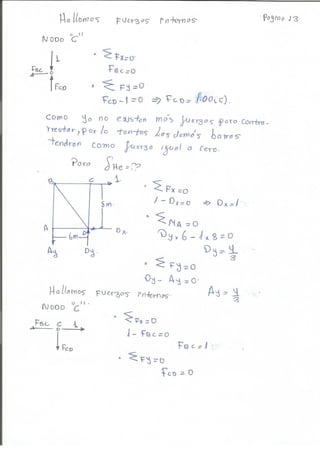 Hallamos fuerzas internas
Pagina 13
NODO "C"
1
FBC
FCD
• ΣFx=0
FBC=0
• ΣFy=0
FCD-1=0 ⇒ FCD= 1.00(c).
Como ya no existen más fuerzas para contra-
rrestar, por lo tantos las demás barras
tendran como fuerza igual a cero.
Para δHc=??
B C 1
8m
A
D
Dx
6m
Ay Dy
• ΣFx=0
1-Dx=0 ⇒ Dx=1
• ΣMA=0
Dy*6-1*8=0
Dy=4/3
• ΣFy=0
Dy-Ay=0
Ay=4/3
Hallamos fuerzas internas
NODO "C".
FBC C 1
FCD
• ΣFx=0
1-FBC=0
FBC=1
• ΣFy=0
FCD=0